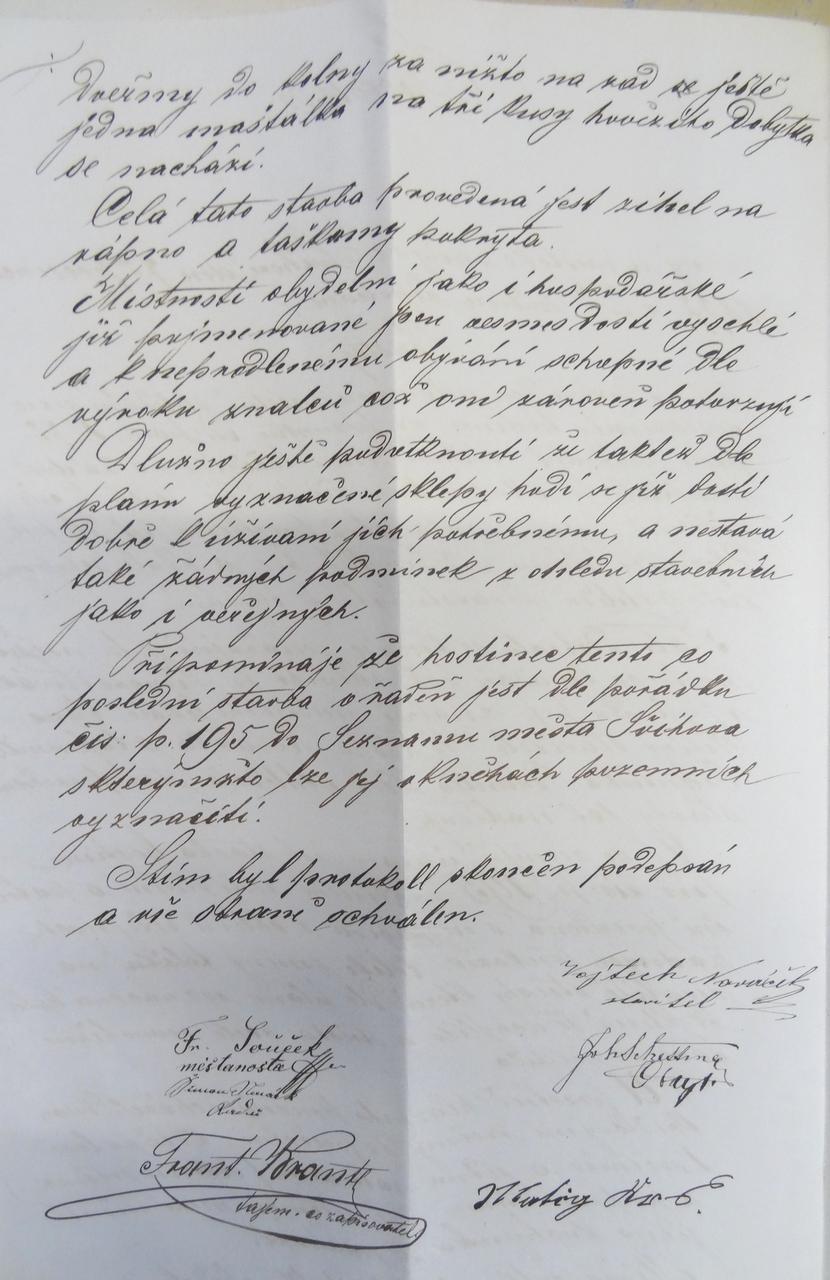 dveřmy do kolny za nížto na zad se ještě
jedna maštálka na tři kusy hovězího dobytka
se nachází.
Celá tato stavba provedená jest zihel na
vápno a taškamy pokryta.
Místností obydelní jako i hospodářské
již pojmenované jsou vesmes dosti vyschlé
a k neprodlenému obývání schopné dle
výroku znalců což oni zároveň potvrzují
Dlužno ještě podvtknouti že taktež dle
plánu vyznačené sklepy hodí se již dosti
dobře k užívaní jich potřebnému, a nestavá
také žádných podmínek z ohledu stavebních
jako i veřejných.
Připomínáje že hostinec tento co
poslední stavba vřaděn jest dle pořádku
čís: p. 195 do Seznamu města Švihova
skterýmžto lze jej vknihách pozemních
vyznačiti.
Stím byl protokoll skončen podepsán
a vše straně schválen.
Vojtech Nováček
stavitel
Fr. Souček
měšťanosta
Šimon
Radní
Frant. Brantl
tajem. co zapisovatel